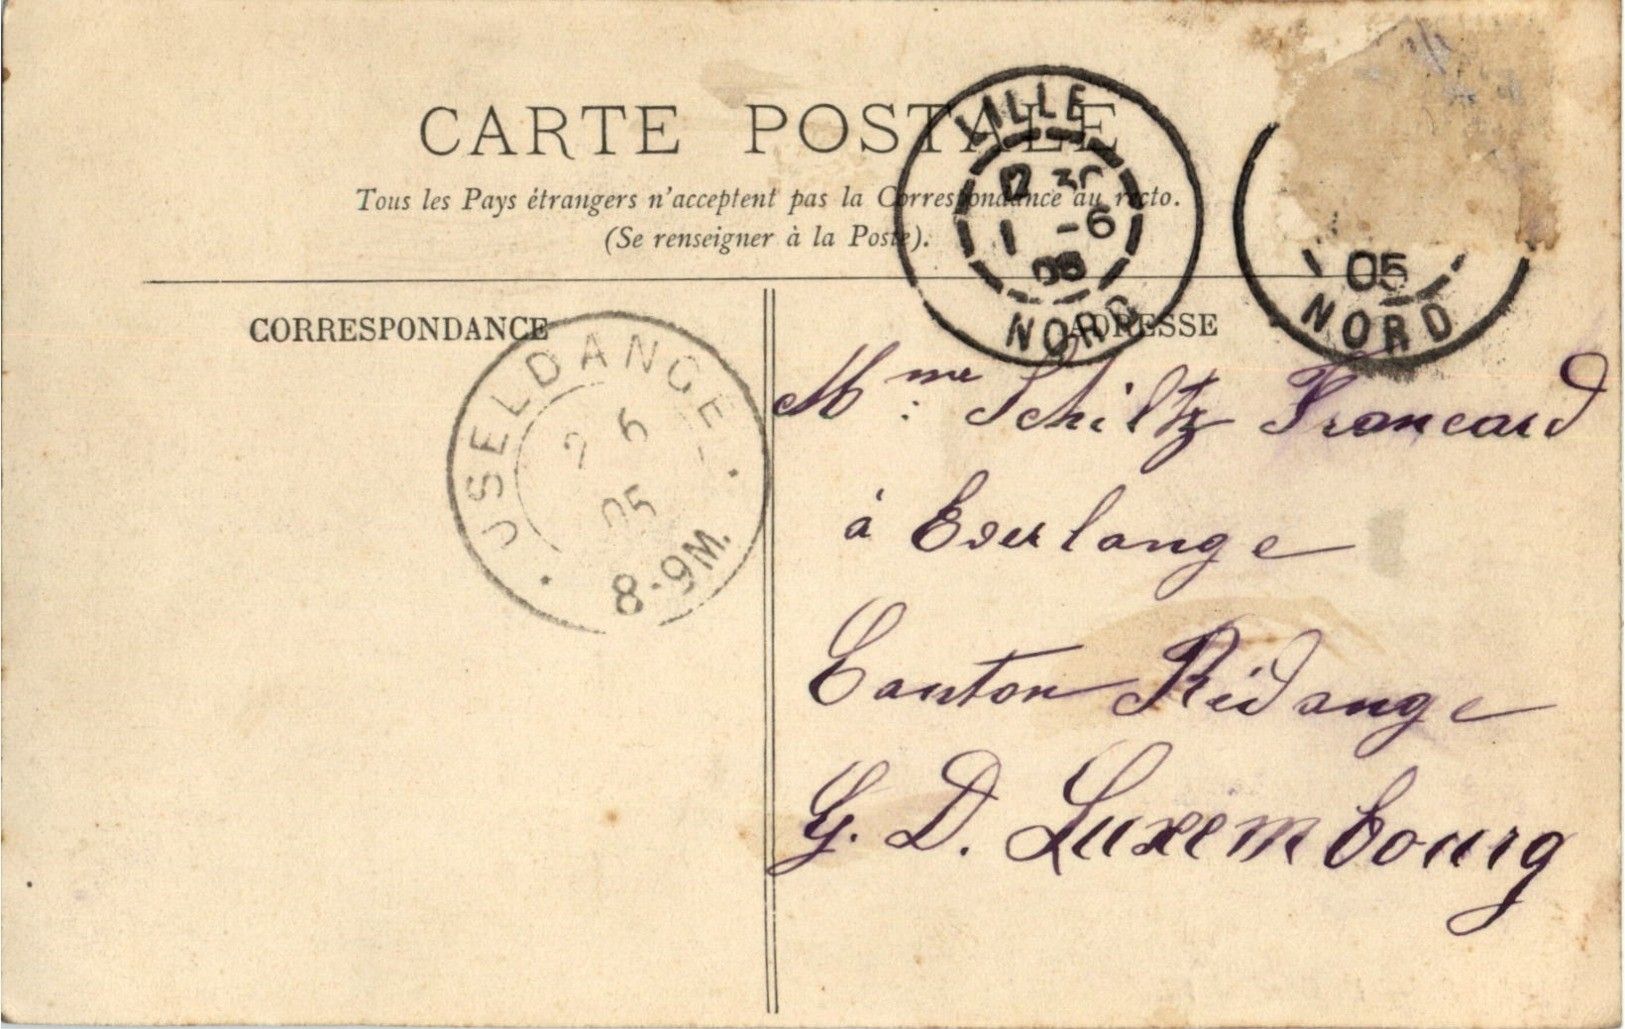 CARTE POSTALE
Tous les Pays étrangers n'acceptent pas la Correspondance au recto.
(Se renseigner à la Poste).
LILLE
1 -6
05
NORD
05
NORD
CORRESPONDANCE
ADRESSE
USELDANGE
2 6
05
8-9M.
Mme Schiltz Francard
à Everlange
Canton Rédange
G. D. Luxembourg